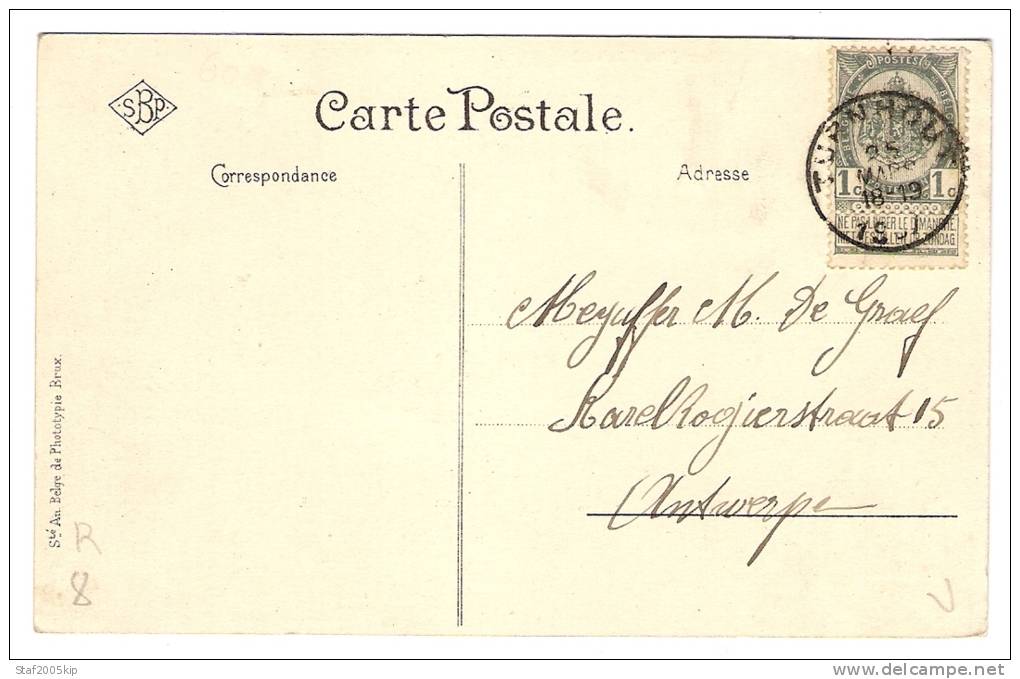 SBP
Carte Postale.
Correspondance
Adresse
POSTES
1c 1c
NE PAS LIVRER LE DIMANCHE
TURNHOUT
25
MARS
18-19
Mejuffer M. De Graef
Karel Rogierstraat 15
Antwerpe
Sté An. Belge de Phototypie Brux.
R
8
V
Staf2005kip
www.delcampe.net